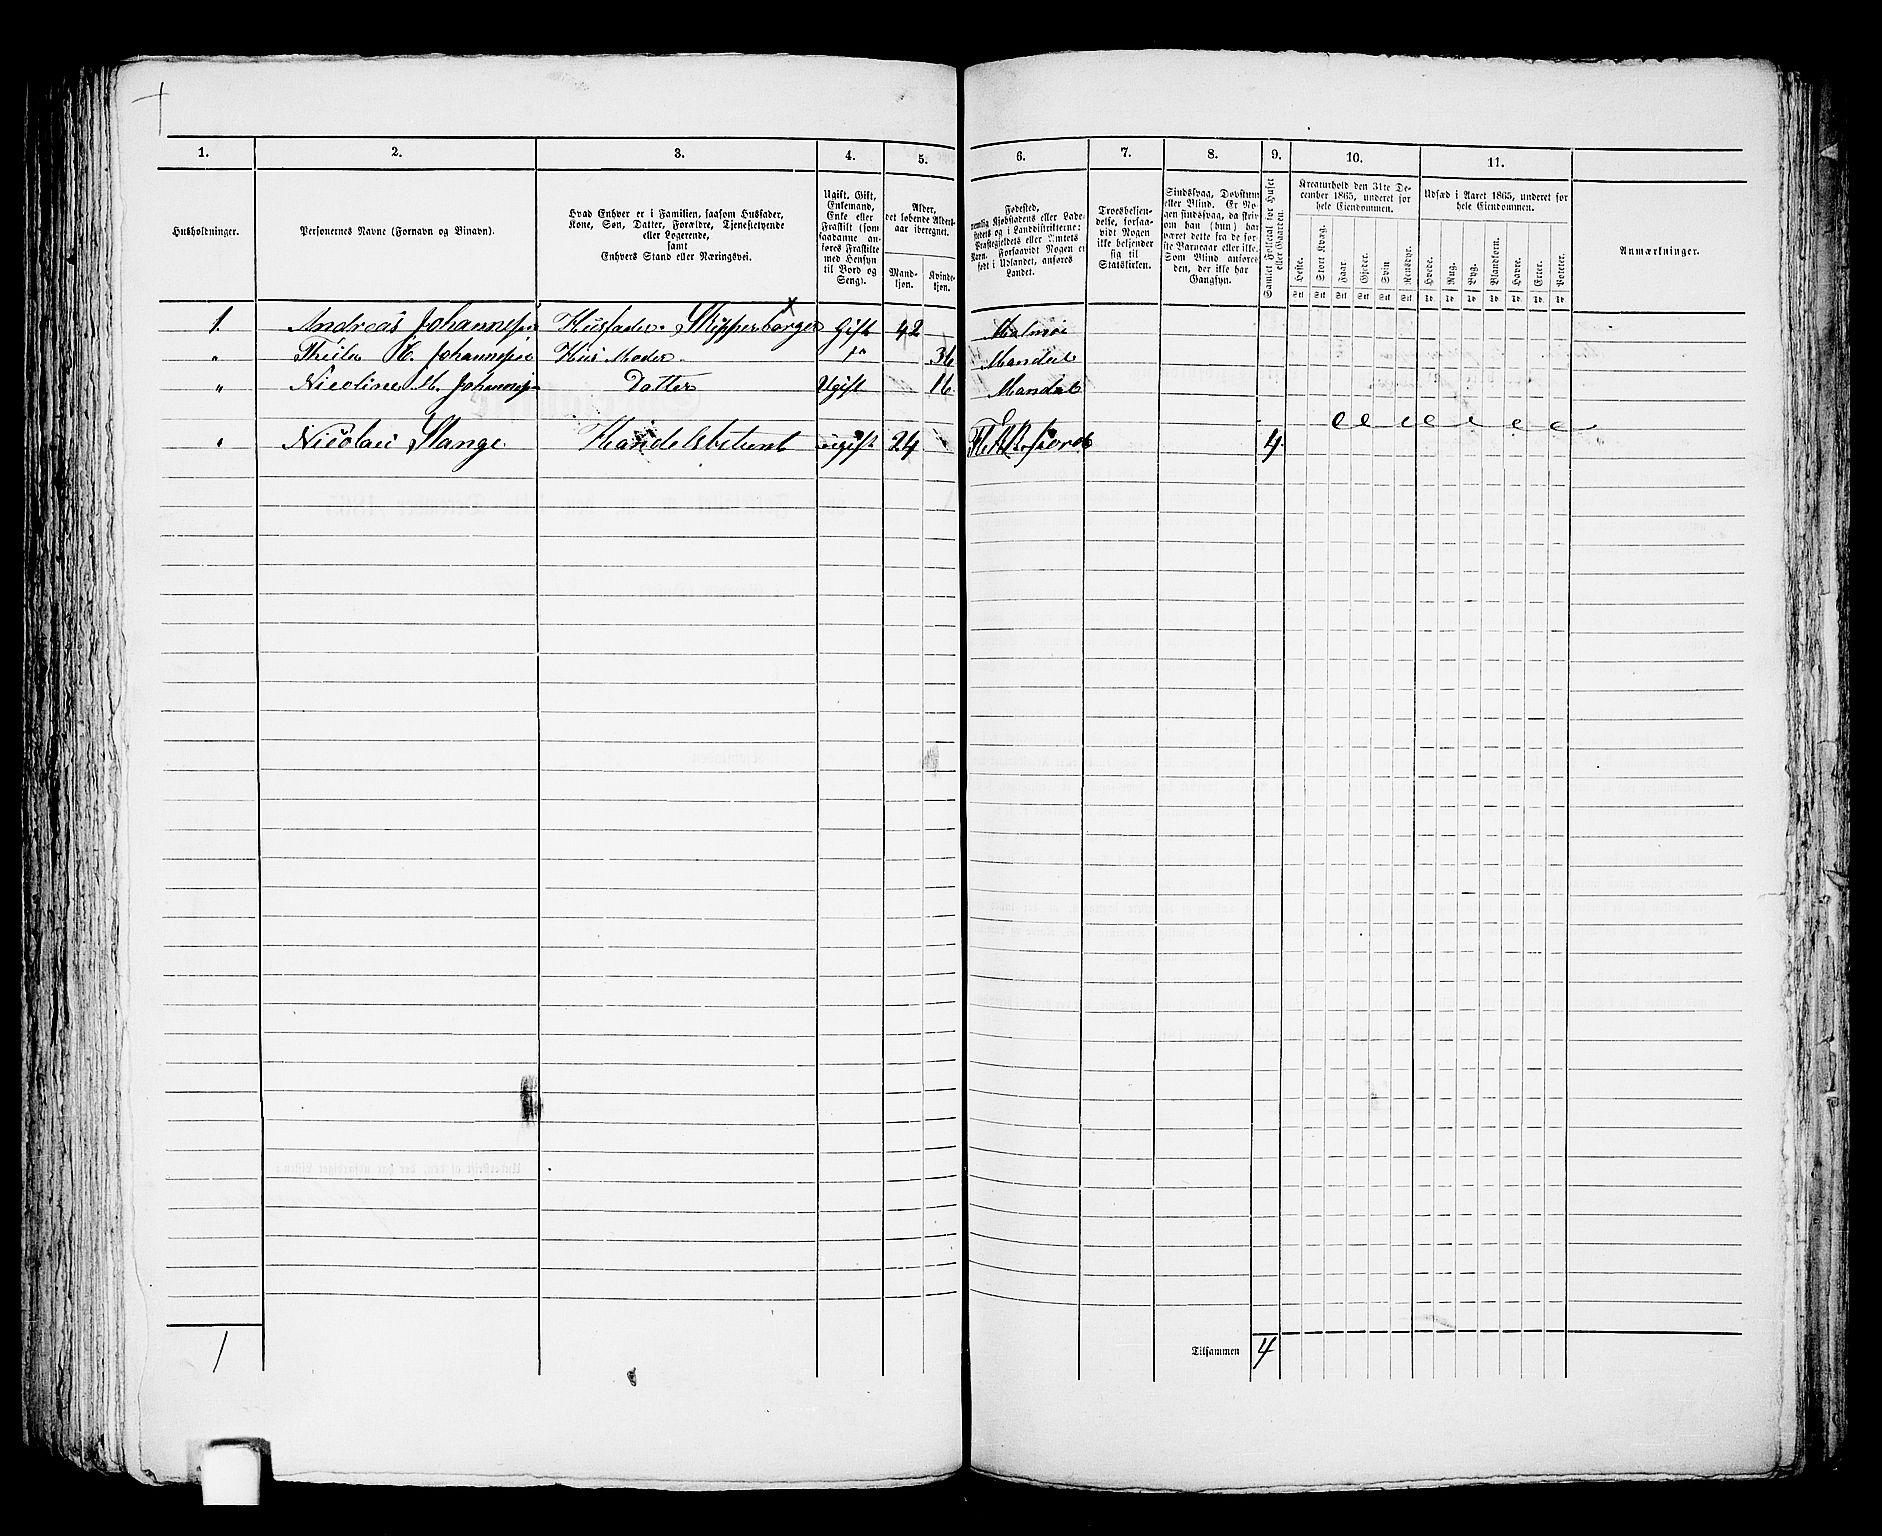 1. 2. 3. 4. 5. 6. 7. 8. 9. 10. 11.
Husholdninger.
Personernes Navne (Fornavn og Binavn).
Hvad Enhver er i Familien, saasom Husfader,
Kone, Søn, Datter, Forældre, Tjenestetyende
eller Logerende,
samt
Enhvers Stand eller Næringsvei.
Ugift, Gift,
Enkemand,
Enke eller
Fraskilt (som
saadanne an-
føres Fraskilte
med Hensyn
til Bord og
Seng).
Alder,
det løbende Alders-
aar iberegnet.
Mand-
kjøn.
Kvinde-
kjøn.
Fødested,
nemlig Kjøbstadens eller Lade-
stedets og i Landdistrikterne:
Præstegjeldets eller Amtets
Navn. Forsaavidt Nogen er
født i Udlandet, anføres
Landet.
Troesbekjen-
delse, forsaa-
vidt Nogen
ikke bekjender
sig til
Statskirken.
Sindssvag, Døvstum
eller Blind. Er No-
gen sindssvag, da skri-
ves om han (hun) har
været dette fra de før-
ste Barneaar eller ikke.
Som Blind anføres
den, der ikke har
Gangsyn.
Samlet Folketal for Huset
eller Gaarden.
Kreaturhold den 31te De-
cember 1865, underet for
hele Eiendommen.
Heste. Stort Kvæg. Faar. Gjeder. Svin Rensdyr.
Udsæd i Aaret 1865, underet for
hele Eiendommen.
Hvede. Rug. Byg. Blandkorn. Havre. Erter. Poteter.
Anmærkninger.
1. Andreas Johannesen Husfader Skipperborger Gift 42 Malmøe
" Theila H. Johannesen Huus Moder do 36 Mandal
" Nicoline M. Johannesen Datter Ugift 16 Mandal
" Nicolai Stange Handelsbetient ugift 24 Flekkefiord 4
1
Tilsammen 4